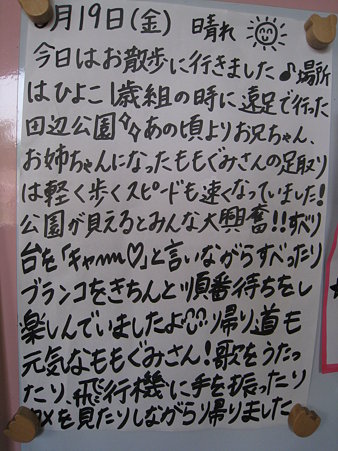 月19日(金) 晴れ
今日はお散歩に行きました♪場所
はひよこ1歳組の時に遠足で行った
田辺公園 あの頃よりお兄ちゃん、
お姉ちゃんになったももぐみさんの足取り
は軽く歩くスピードも速くなっていました!
公園が見えるとみんな大興奮!!すべり
台を「キャーm♡」と言いながらすべったり
ブランコをきちんと順番待ちをし
楽しんでいましたよ 帰り道も
元気なももぐみさん!歌をうたっ
たり、飛行機に手を振ったり
を見たりしながら帰りました